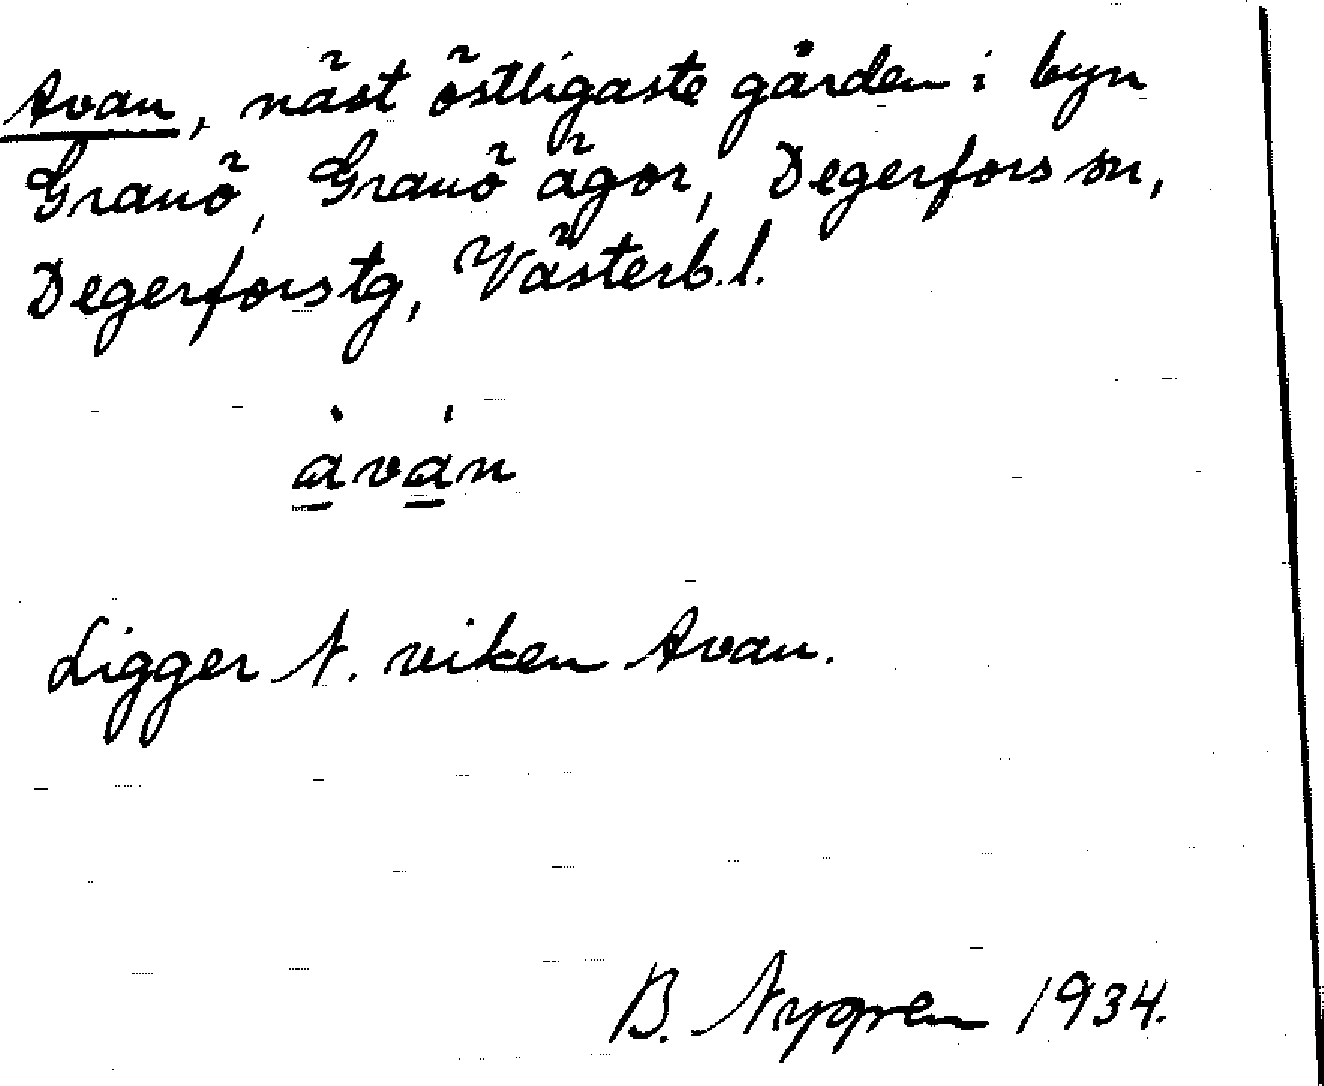 Avan, näst östligaste gården i byn
Granö, Granö ägor, Degerfors sn,
Degerfors tg, Västerb. l.
à̲vá̲n
Ligger N. viken Avan.
B. Nygren 1934.